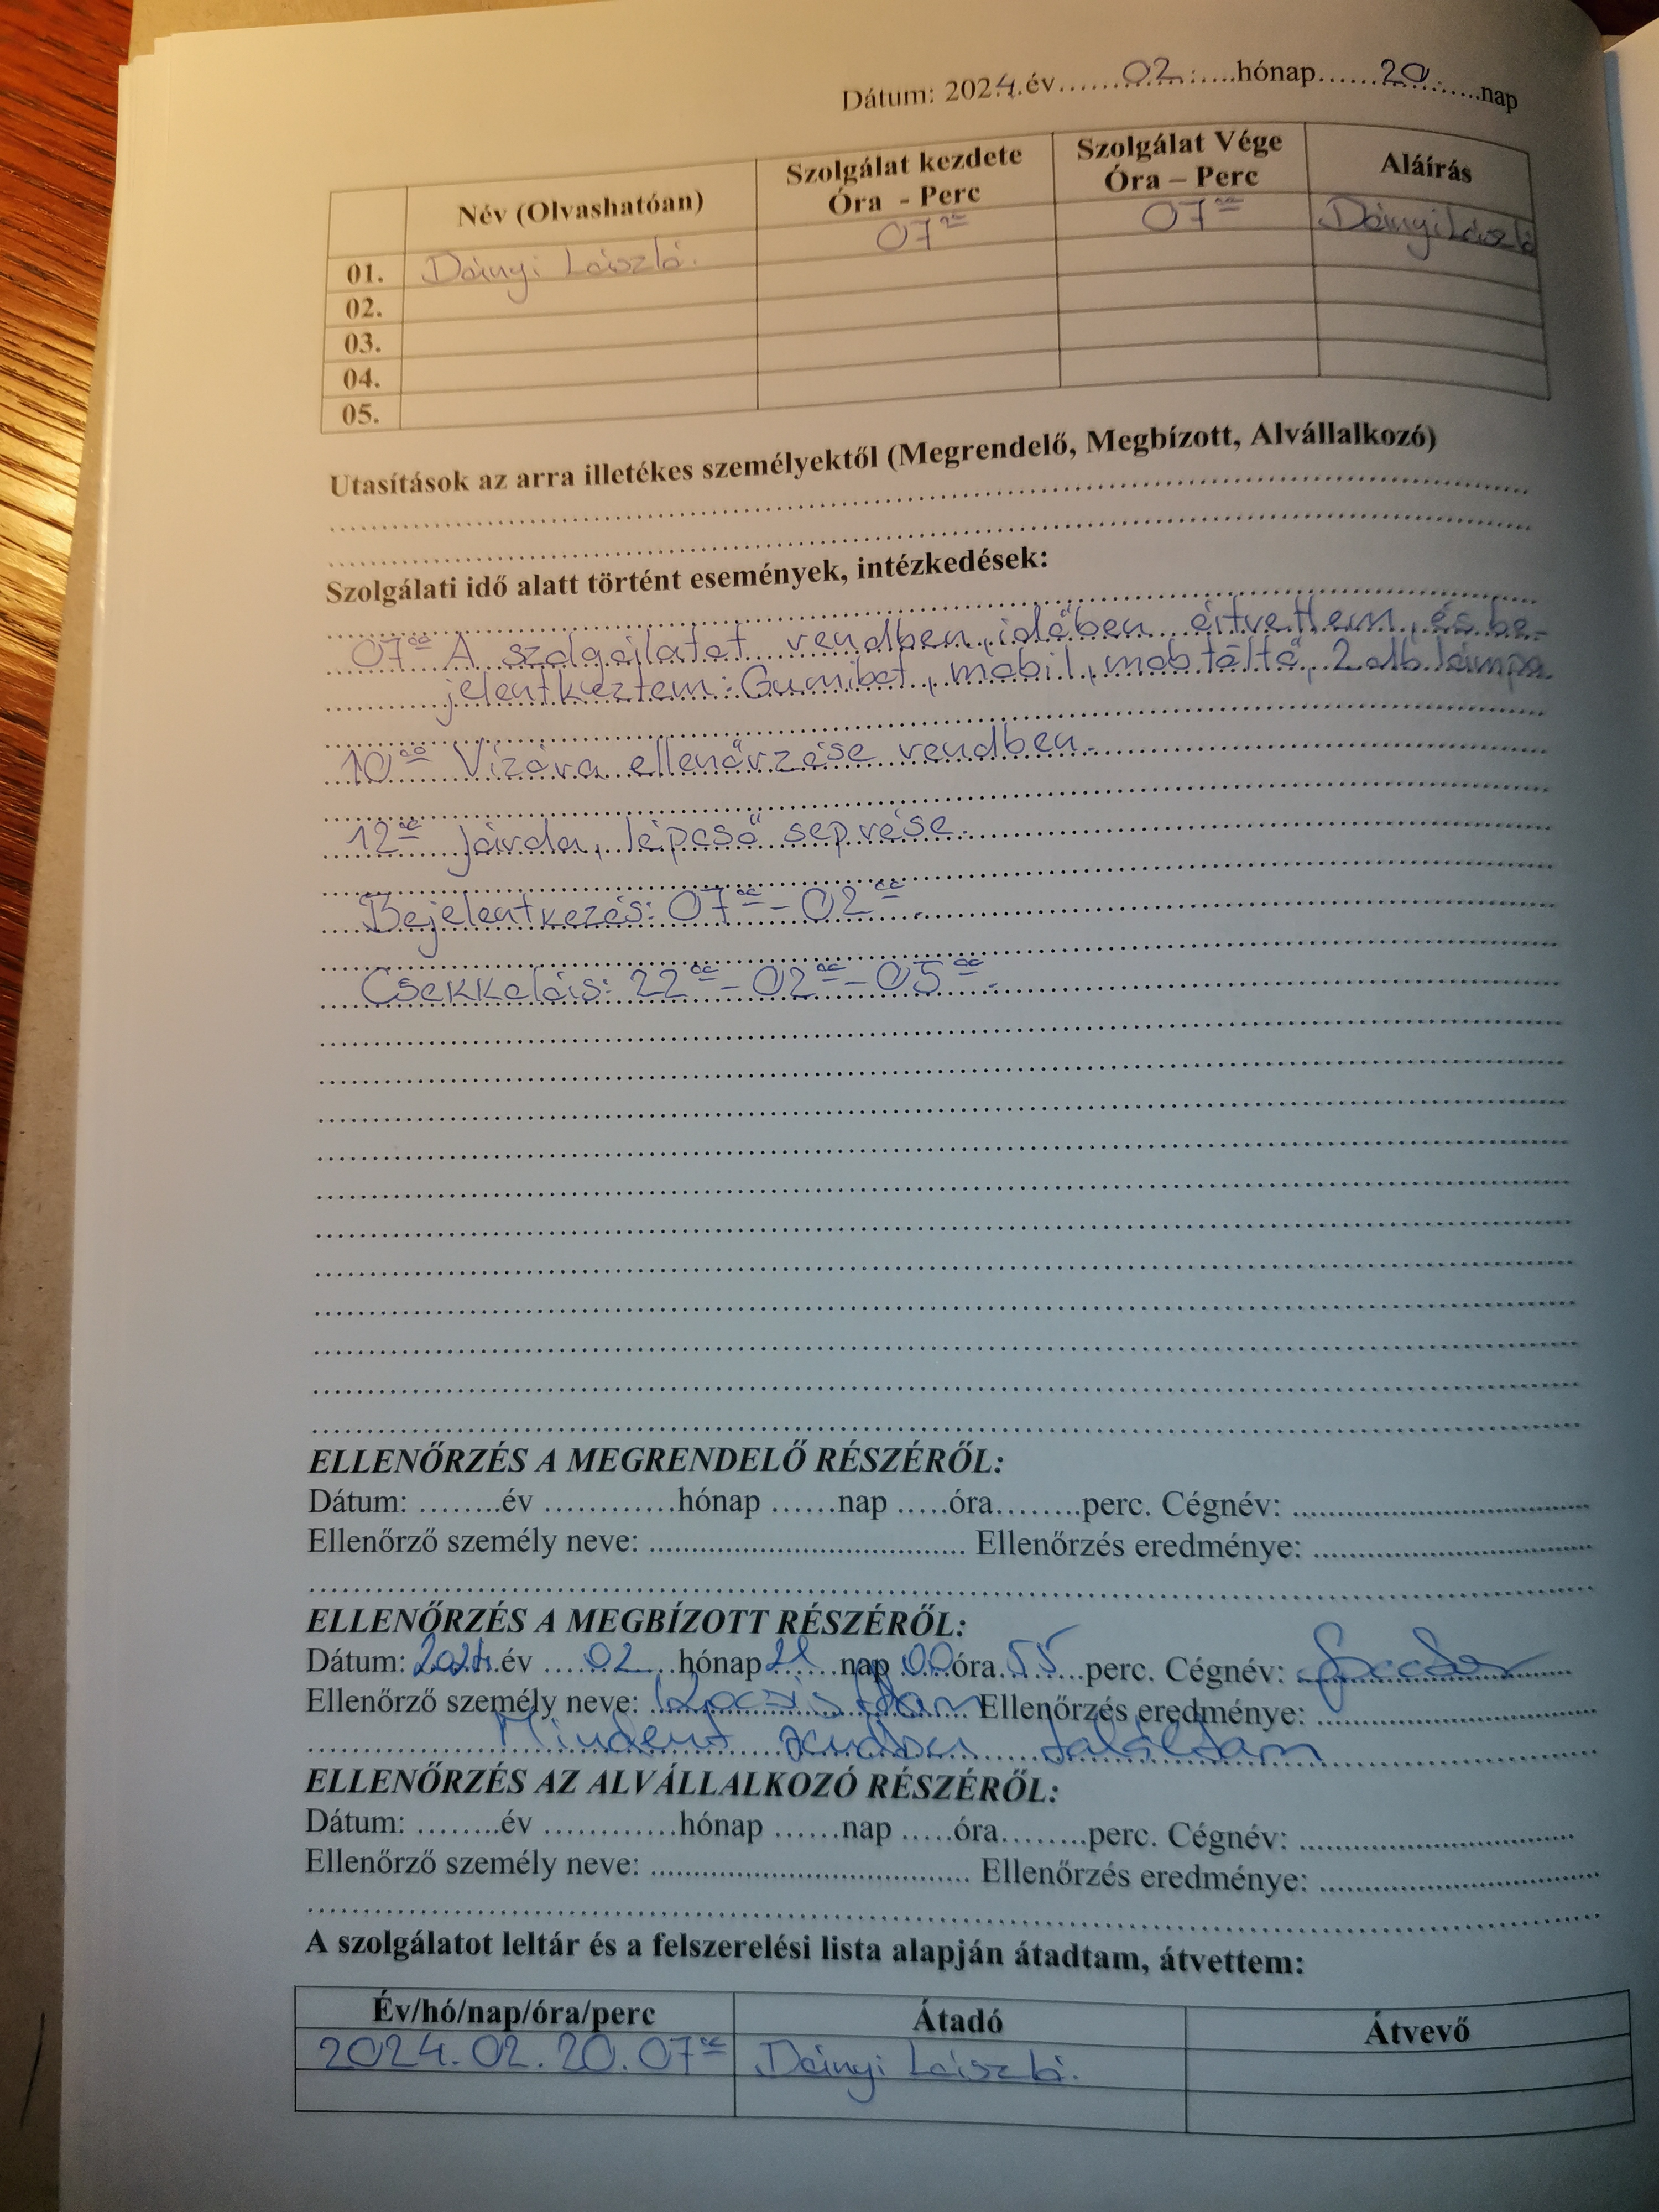 Dátum: 2024.év.......02......hónap......20......nap
Név (Olvashatóan) Szolgálat kezdete Óra - Perc Szolgálat Vége Óra – Perc Aláírás
01. Dányi László. 07⁰⁰ 07⁰⁰ Dányi László
02.
03.
04.
05.
Utasítások az arra illetékes személyektől (Megrendelő, Megbízott, Alvállalkozó)
Szolgálati idő alatt történt események, intézkedések:
07⁰⁰ A szolgálatot rendben, időben átvettem, és be-
jelentkeztem: Gumibot, mobil, mob töltő, 2 db lámpa.
10⁰⁰ Vízóra ellenőrzése rendben.
12⁰⁰ Járda, lépcső seprése.
Bejelentkezés: 07⁰⁰ - 02⁰⁰.
Csekkolás: 22⁰⁰ - 02⁰⁰ - 05⁰⁰.
ELLENŐRZÉS A MEGRENDELŐ RÉSZÉRŐL:
Dátum: ........év ............hónap ......nap .....óra........perc. Cégnév: ..............................
Ellenőrző személy neve: .................................... Ellenőrzés eredménye: ..............................
ELLENŐRZÉS A MEGBÍZOTT RÉSZÉRŐL:
Dátum: 2024.év .....02....hónap 21 nap 00 óra 55 perc. Cégnév:
Ellenőrző személy neve: Kocsis Ádám Ellenőrzés eredménye: ..............................
Mindent rendben találtam
ELLENŐRZÉS AZ ALVÁLLALKOZÓ RÉSZÉRŐL:
Dátum: ........év ............hónap ......nap .....óra........perc. Cégnév: ..............................
Ellenőrző személy neve: .................................... Ellenőrzés eredménye: ..............................
A szolgálatot leltár és a felszerelési lista alapján átadtam, átvettem:
Év/hó/nap/óra/perc Átadó Átvevő
2024.02.20.07⁰⁰ Dányi László.